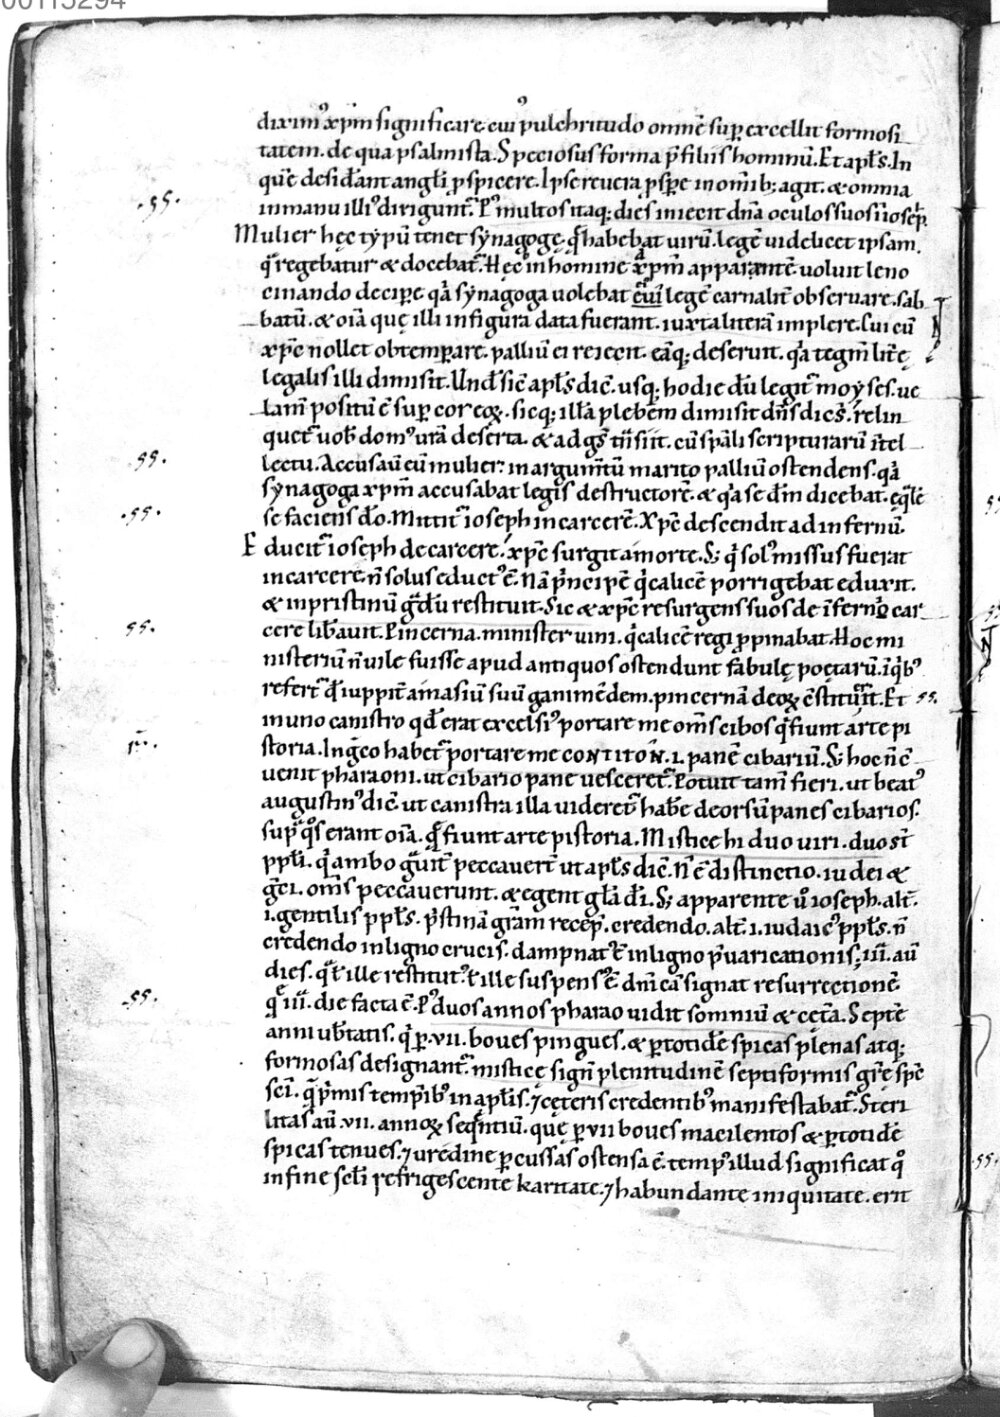 00113294
dixim᷒ xp̄m significare. cui᷒ pulchritudo omnē sup̲ excellit formosi
tatem. de qua psalmista. Speciosus forma p̄ filiis hominū. Et apl̄s. In
quē desid̄ant angl̄i p̲spicere. Ipse reuera p̲sp̲e in om̄ib; agit. & omnia
in manu illi᷒ dirigunt᷑. P᷒ multos itaq; dies iniecit dn̄a oculos suos ī ioseph.
Mulier hęc typū tenet synagogę. q̄ habebat uirū. legē uidelicet ipsam.
q̄ regebatur & docebat᷑. Hęc in homine xp̄m apparantē uoluit leno
cinando decip̲e q̄a synagoga uolebat eum legē carnalit᷑ obseruare. sab
batū. & oīa quę illi in figura data fuerant. iuxta literā implere. Cui cū
xp̄c nollet obtemp̲are. palliū ei reiecit. eāq; deseruit. q̄a tegm̄ litt̄ę
legalis illi dimisit. Und̄ sic apl̄s dic̄. usq; hodie dū legit᷑ moyses. ue
lam̄ positū ē sup̲ cor eoꝝ. sicq; ill̄a plebem dimisit dn̄s dic̄s. relin
quet᷑ uob̄ dom᷒ ur̄a deserta. & ad gs̄ tn̄siit. cū sp̄ali scripturarū īntel
lectu. Accusau᷑ eū mulier. in argum̄tū marito palliū ostendens. q̄a
synagoga xp̄m accusabat legis destructorē. & q̄a se dm̄ dicebat. ęq̄lē
se faciens dō. Mittit᷑ ioseph in carcerē. Xp̄c descendit ad infernū.
Educit᷑ ioseph de carcere. xp̄c surgit a morte. S; q̄ sol᷒ missus fuerat
in carcere. n̄ solus educt᷒ ē. Nā p̄ncipē q̄ calicē porrigebat eduxit.
& in pristinū gd̄ū restituit. Sic & xp̄c resurgens suos de īferno car
cere lib̄auit. Pincerna. minister uini. q̄ calicē regi p̲pinabat. Hoc mi
nisteriū n̄ uile fuisse apud antiquos ostendunt fabulę poetarū. ī q̄b᷒
refert᷑ qd̄ iuppit᷑ amasiū suū ganimēdem. pincernā deoꝝ ēstituit. Et
in uno canistro qd̄ erat excelsi᷒ portare me om̄s cibos q̄ fiunt arte pi
storia. In gc̄o habet᷑ portare me CONTITON. i. panē cibariū. S; hoc n̄ c̄
uenit pharaoni. ut cibario pane uesceret᷑. Potuit tam̄ fieri. ut beat᷒
augustin᷒ dic̄. ut canistra illa uideret᷑ hab̄e deorsū panes cibarios.
sup̲ q̄s erant oīa. q̄ fiunt arte pistoria. Mistice hi duo uiri. duo st̄
ppl̄i. q̄ ambo guit̄ peccauer̄t ut apl̄s dic̄. N̄ ē distinctio. iudei &
gc̄i. om̄s peccauerunt. & egent gl̄a dī. S; apparente u̇ ioseph. alt᷑.
i. gentilis ppl̄s. p̄stinā gr̄am recep̄. credendo. alt᷑. i. iudaic᷒ ppl̄s. n̄
credendo in ligno crucis. dampnat᷒ ē in ligno p̄uaricationis. iii. au᷑
dies. q̄ ł ille restitut᷒. ł ille suspens᷒ ē. dn̄icā signat resurrectionē
q̄ iii. die facta ē. P᷒ duos annos pharao uidit somniū & cet̄a. Septē
anni ub̄tatis. q̄ p̲ .vii. boues pingues. & p̲ totidē spicas plenas atq;
formosas designant᷑. mistice sign̄ plenitudinē septiformis gr̄e sp̄c
sc̄i. q̄ p̄mis temp̲ib᷒ in apl̄is. ⁊ cęteris credentib᷒ manifestabat᷑. Steri
litas aū .vii. annoꝝ seq̄ntiū. quę p̲ vii boues macilentos & p̲ totidē
spicas tenues. ⁊ uredine p̲cussas ostensa ē. temp᷒ illud significat q̊
in fine scl̄i refrigescente karitate. ⁊ habundante iniquitate. erit